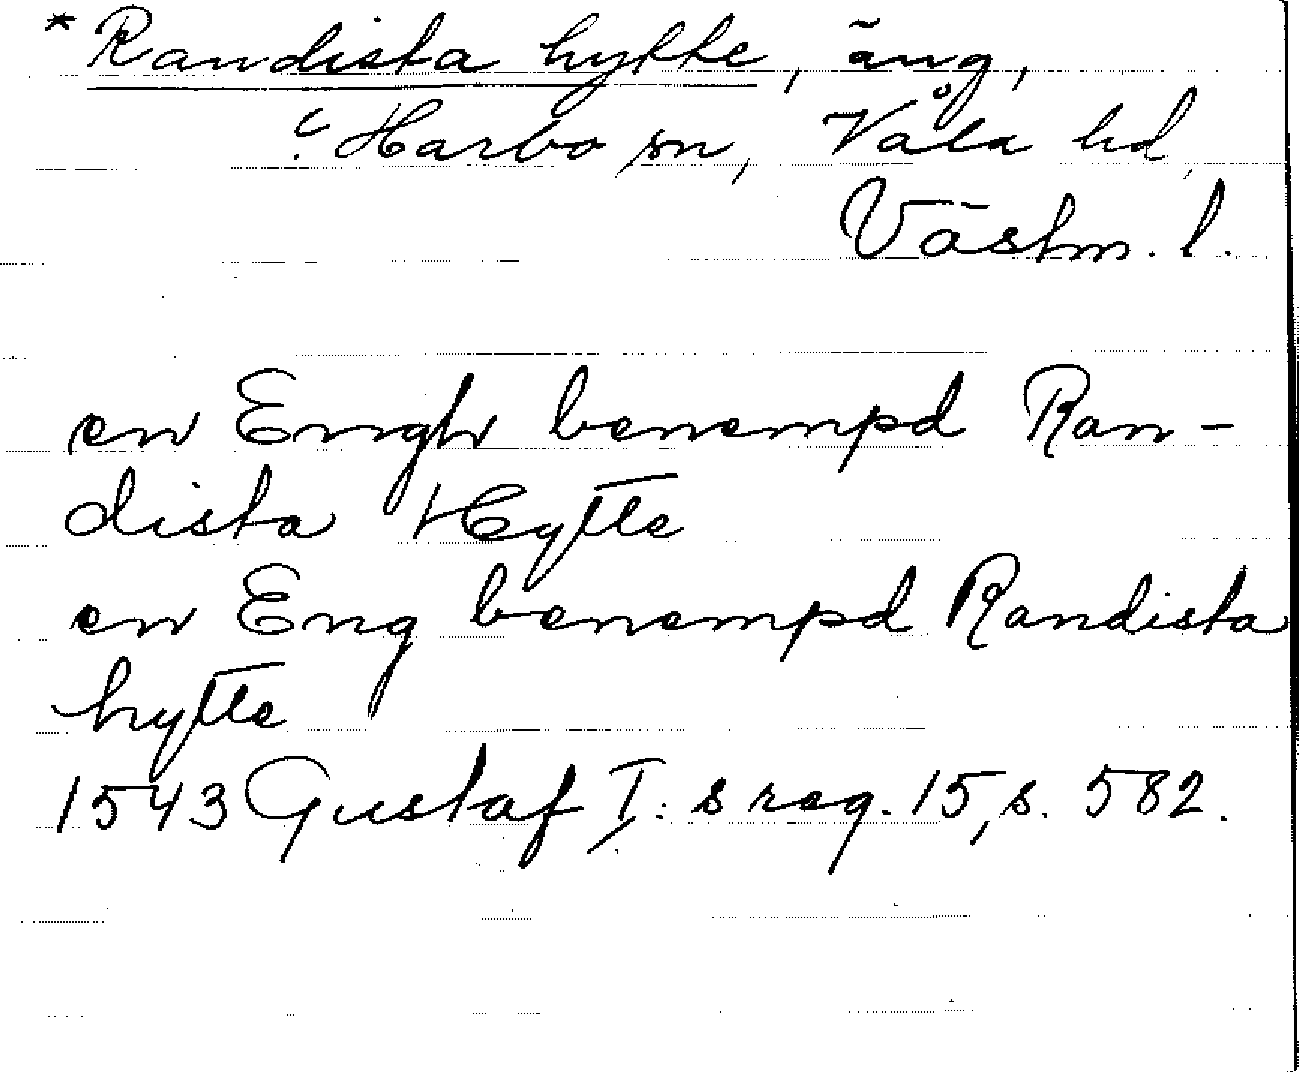 * Randista hytte, äng,
? Harbo sn, Våla hd
Västm. l.
en Engh benempd Ran-
dista Hytte
en Eng benempd Randista
hytte
1543 Gustaf I:s reg. 15, s. 582.